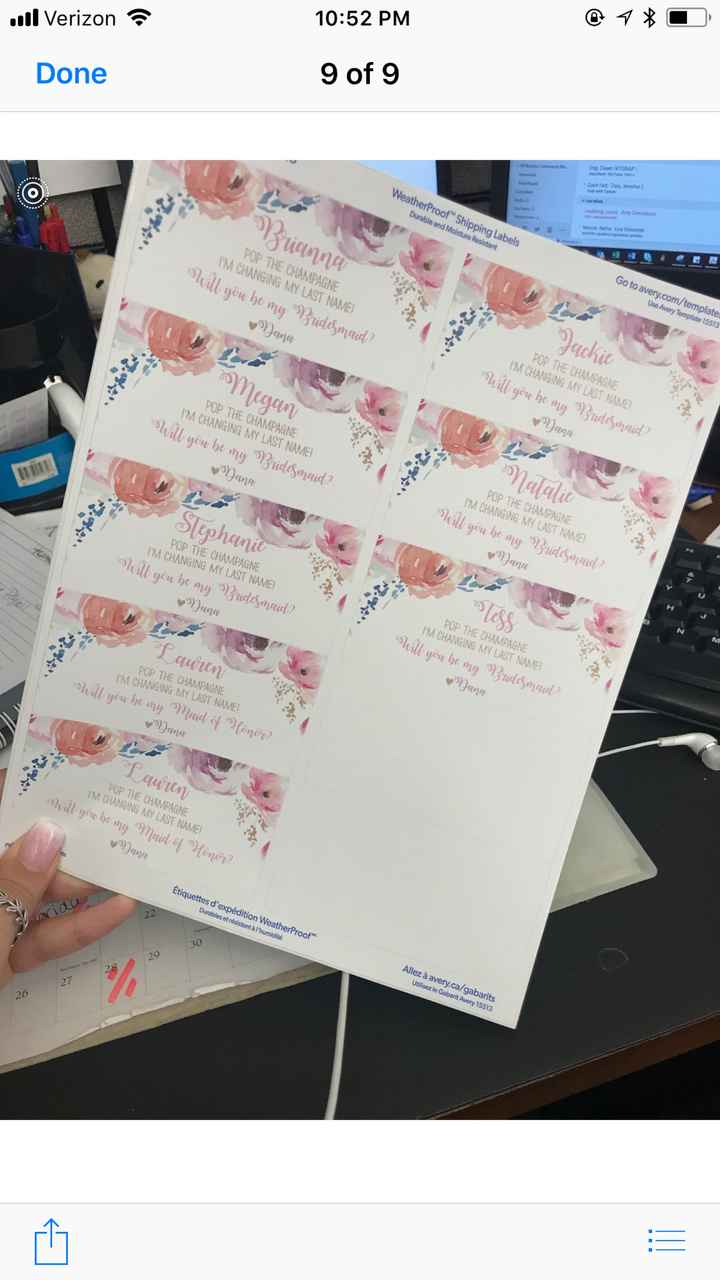 Verizon
10:52 PM
Done
9 of 9
WeatherProof™ Shipping Labels
Durable and Moisture Resistent
Go to avery.com/template
Use Avery Template 15513
Brianna
POP THE CHAMPAGNE
I'M CHANGING MY LAST NAME!
Will you be my Bridesmaid?
Dana
Megan
POP THE CHAMPAGNE
I'M CHANGING MY LAST NAME!
Will you be my Bridesmaid?
Dana
Stephanie
POP THE CHAMPAGNE
I'M CHANGING MY LAST NAME!
Will you be my Bridesmaid?
Dana
Lauren
POP THE CHAMPAGNE
I'M CHANGING MY LAST NAME!
Will you be my Maid of Honor?
Dana
Lauren
POP THE CHAMPAGNE
I'M CHANGING MY LAST NAME!
Will you be my Maid of Honor?
Dana
Jackie
POP THE CHAMPAGNE
I'M CHANGING MY LAST NAME!
Will you be my Bridesmaid?
Dana
Natalie
POP THE CHAMPAGNE
I'M CHANGING MY LAST NAME!
Will you be my Bridesmaid?
Dana
Tess
POP THE CHAMPAGNE
I'M CHANGING MY LAST NAME!
Will you be my Bridesmaid?
Dana
Étiquettes d'expédition WeatherProof™
Durables et résistant à l'humidité
Allez à avery.ca/gabarits
Utilisez le Gabarit Avery 15513
22
26 27 28 29 30